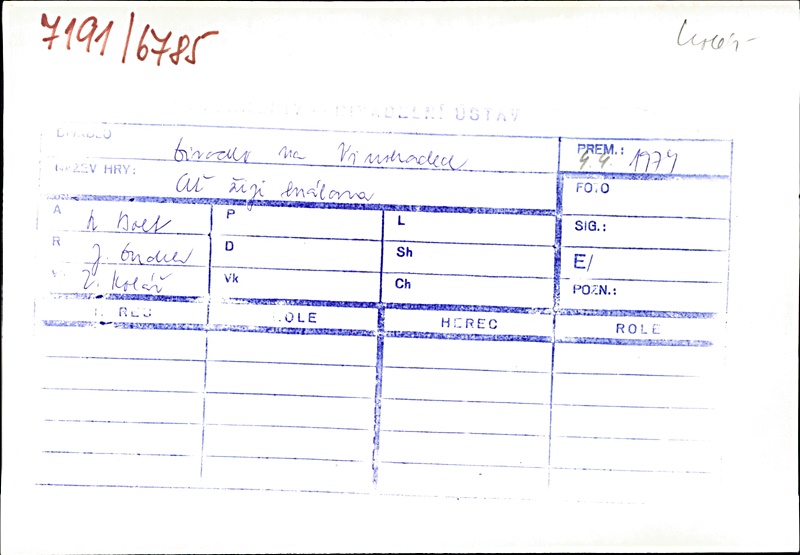 7191/6785
Kolář
DIVADELNÍ ÚSTAV
DIVADLO Divadlo na Vinohradech PREM.: 4.4. 1974
NÁZEV HRY: Ať žije královna FOTO
A R. Bolt P L SIG.:
R J. Dudek D Sh E/
V Z. Kolář Vk Ch POZN.:
HEREC ROLE HEREC ROLE